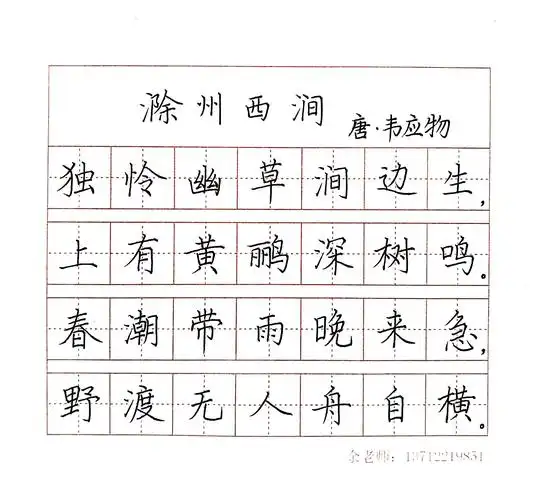 滁州西涧
唐·韦应物
独怜幽草涧边生，
上有黄鹂深树鸣。
春潮带雨晚来急，
野渡无人舟自横。
余老师：13712219851